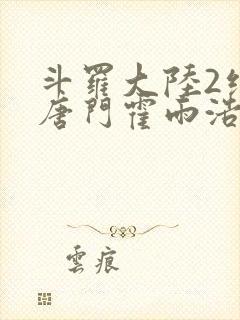 斗羅大陸2
唐門霍雨浩
雲痕